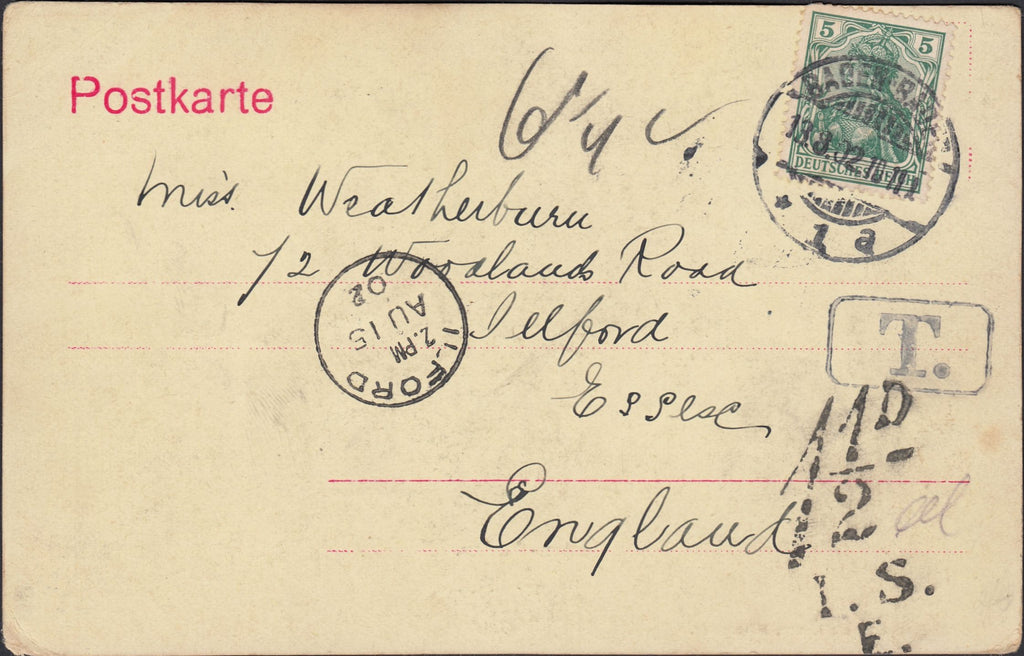 Postkarte
5 5
DEUTSCHES REICH
BADEN-BADEN
13.8.02.11-12V
* 1 a
Miss. Weatherburn
72 Woodlands Road
Ilford
Essex
England
ILFORD
2.PM
AU 15
02
T.
1½D
I.S.
E.